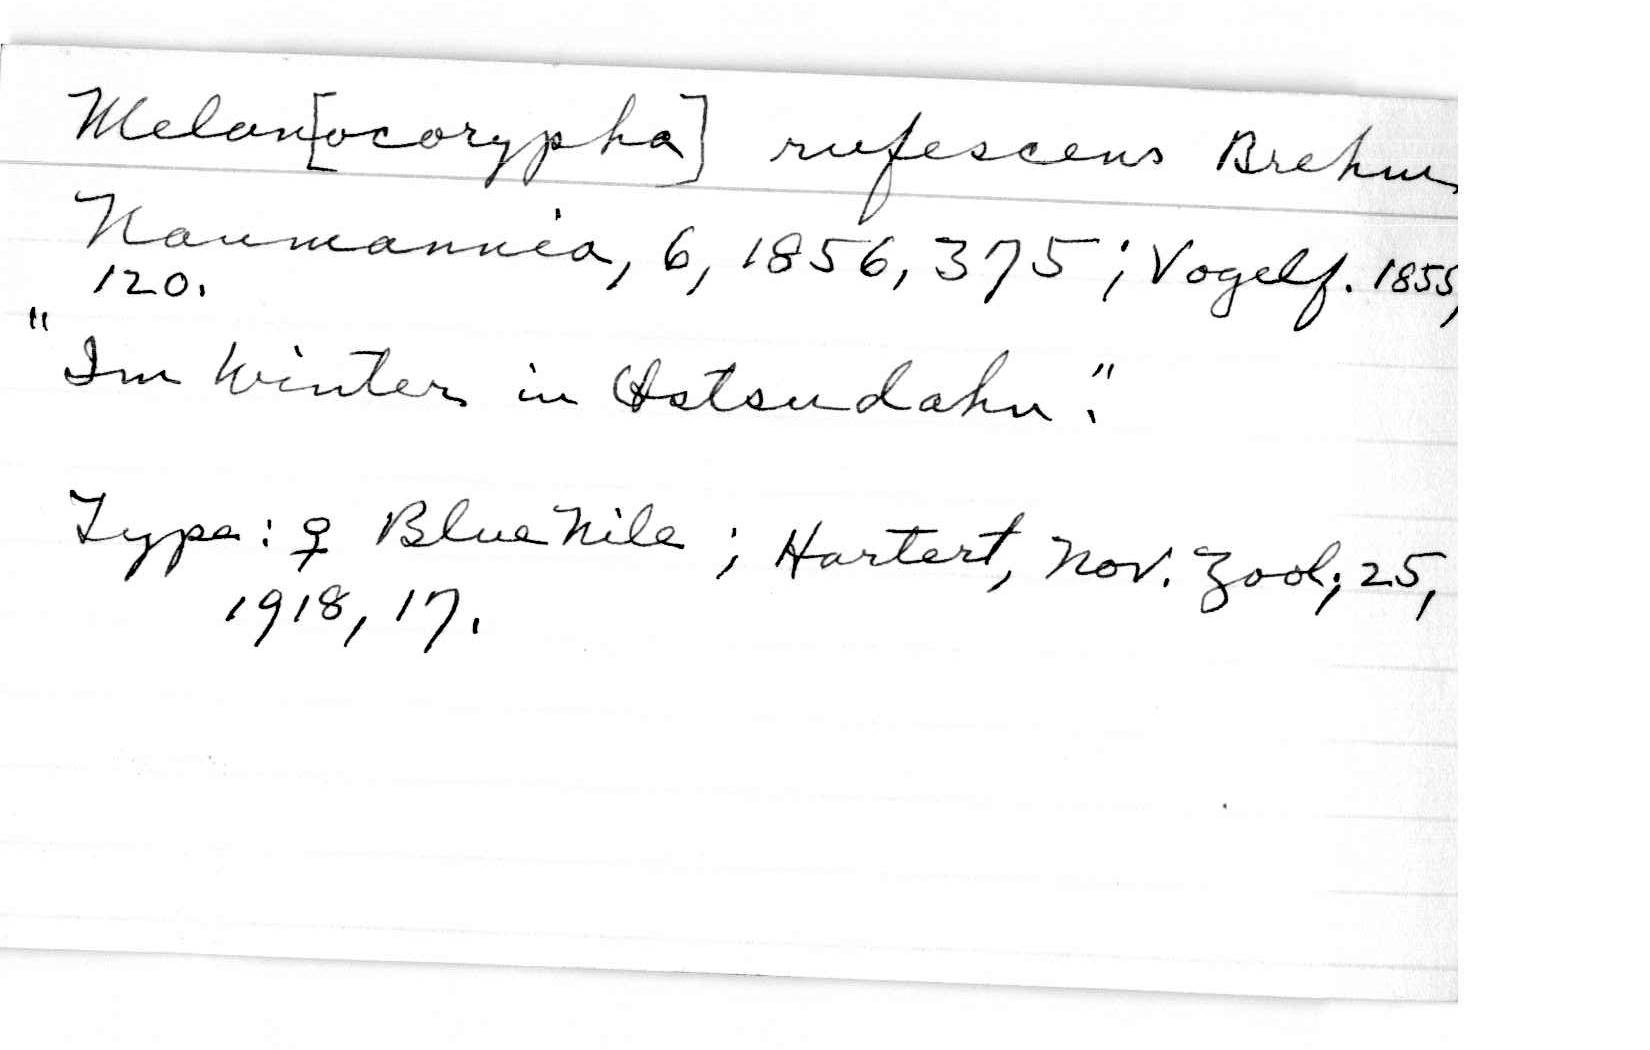 Melan[ocorypha] rufescens Brehm
Naumannia, 6, 1856, 375; Vogelf. 1855,
120.
"Im Winter in Ostsudahn".
Type: ♀ Blue Nile; Hartert, Nov. Zool., 25,
1918, 17.